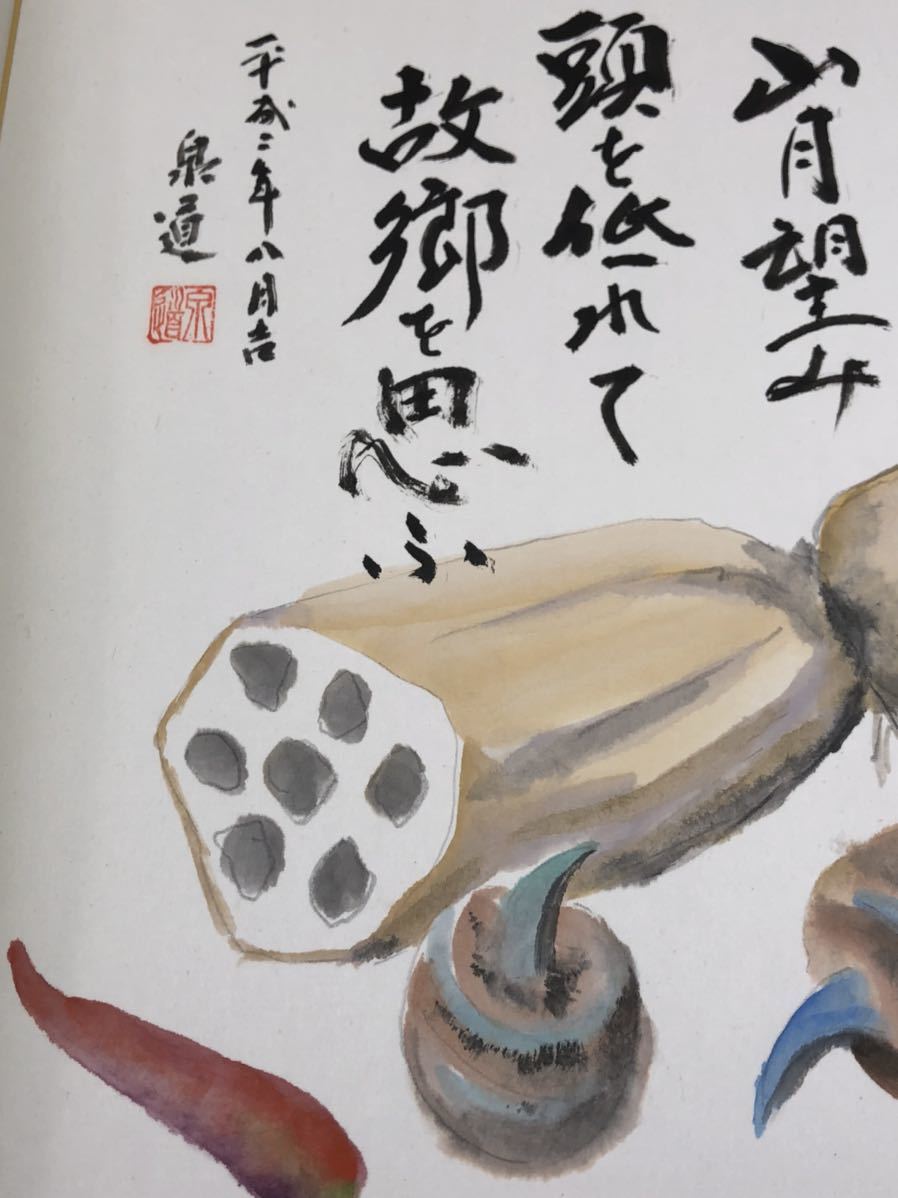 山月望み
頭を低れて
故郷を思ふ
平成二年八月吉
泉道
泉道